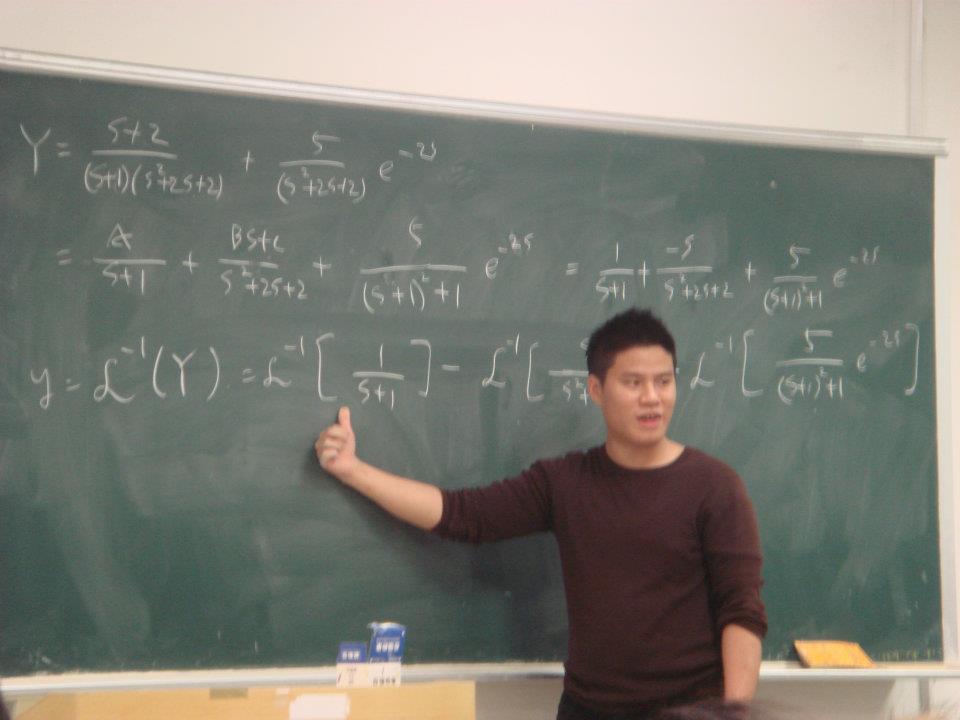 Y = (s+2)/((s+1)(s²+2s+2)) + 5/(s²+2s+2) e^(-2s)
= A/(s+1) + (Bs+C)/(s²+2s+2) + 5/((s+1)²+1) e^(-2s) = 1/(s+1) + (-s)/(s²+2s+2) + 5/((s+1)²+1) e^(-2s)
y = ℒ⁻¹(Y) = ℒ⁻¹[1/(s+1)] - ℒ⁻¹[ s²+ ℒ⁻¹[5/((s+1)²+1) e^(-2s)]